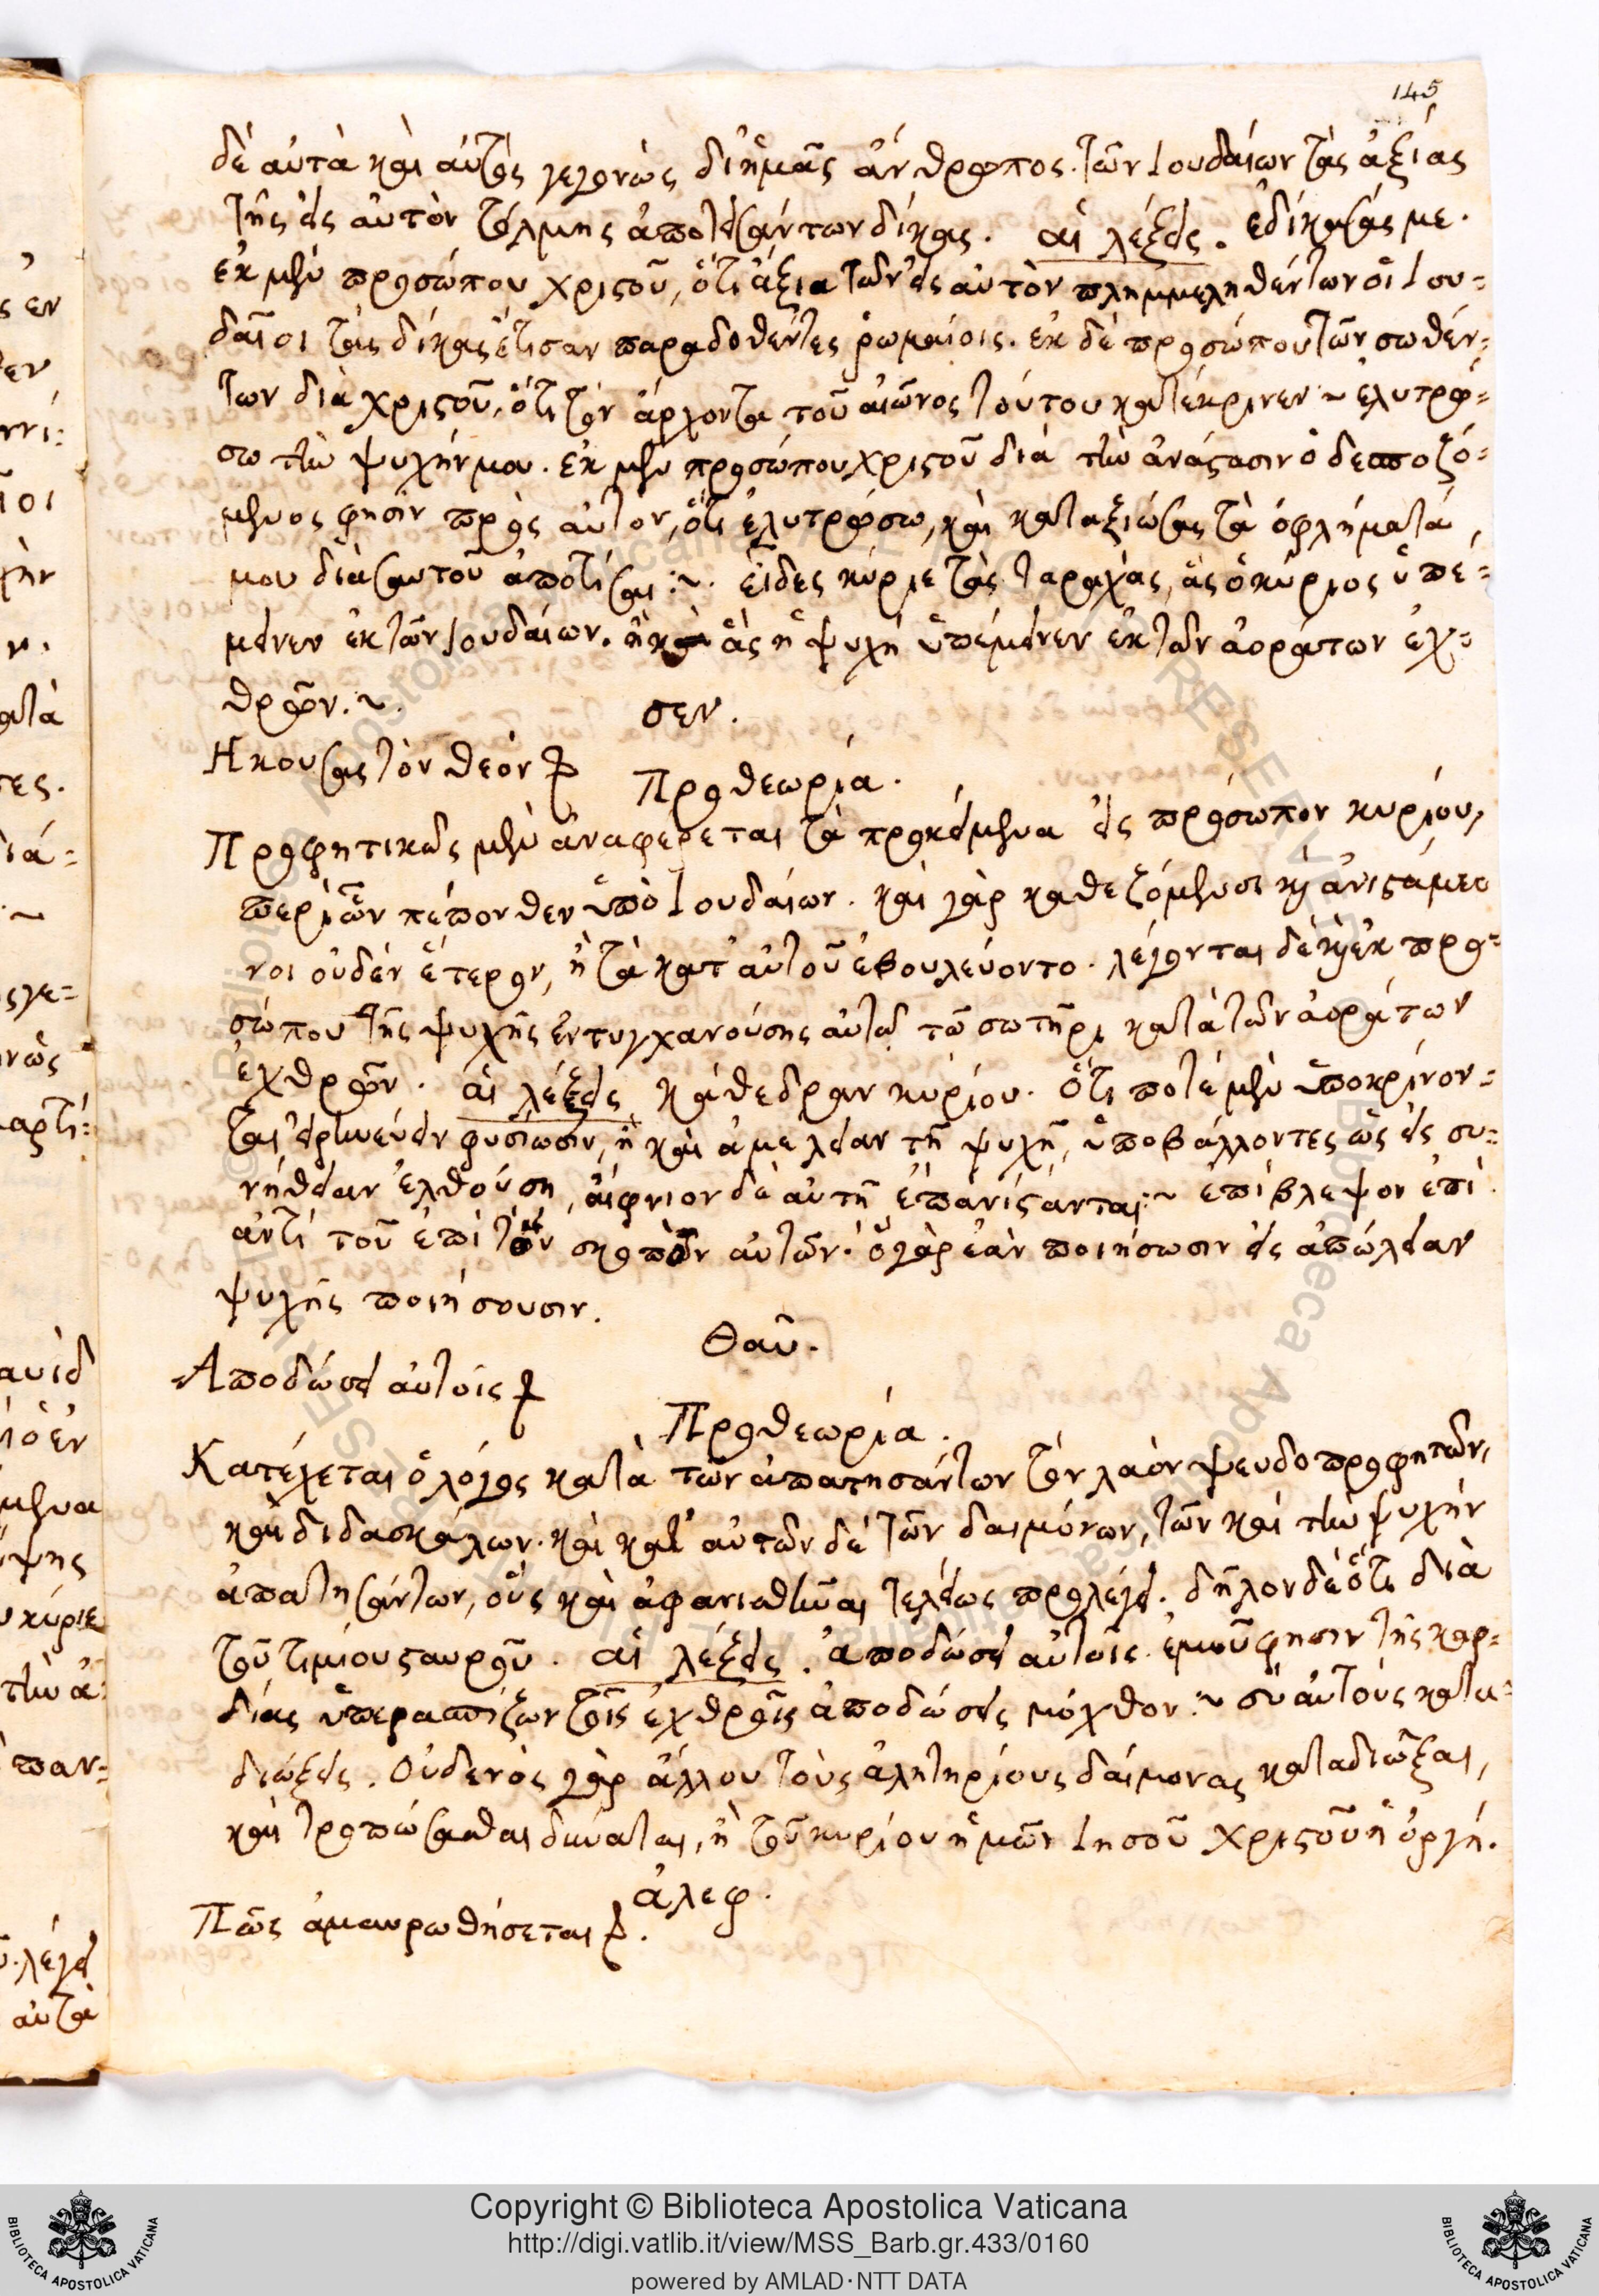 145
δὲ αὐτὰ καὶ αὐτὸς γεγονὼς δι ἡμᾶς ἄνθρωπος. τῶν Ιουδαίων τὰς ἀξίας
τῆς εἰς αὐτὸν τόλμης ἀποτεισάντων δίκας. αἱ λέξεις. ἐδίκασάς με.
ἐκ μὲν προσώπου χριστοῦ, ὅτι ἄξια τῶν εἰς αὐτὸν πλημμεληθέντων οἱ Ιου=
δαῖοι τὰς δίκας ἔτισαν παραδοθέντες ῥωμαίοις. ἐκ δὲ προσώπου τῶν σωθέν=
των διὰ χριστοῦ, ὅτι τὸν ἄρχοντα τοῦ αἰῶνος τούτου κατέκρινεν ~ ἐλυτρώ=
σω τὴν ψυχήν μου. ἐκ μὲν προσώπου χριστοῦ διὰ τὴν ἀνάστασιν ὁ δεσποζό=
μενος φησὶν πρὸς αὐτον, ὅτι ἐλυτρώσω, καὶ καταξιώσας τὰ ὀφλήματά
μου διὰ σαυτοῦ ἀποτίσαι :~. εἶδες κύριε τὰς ταραχάς, ἃς ὁ κύριος ὑπέ=
μεινεν ἐκ τῶν Ιουδαίων. ἢ καὶ ἃς ἡ ψυχὴ ὑπέμεινεν ἐκ τῶν ἀοράτων ἐχ=
θρῶν. ~.
σεν.
Ηκουσας τὸν θεόν
Προθεωρία.
Προφητικῶς μὲν ἀναφέρεται τὰ προκείμενα εἰς πρόσωπον κυρίου,
περὶ ὧν πέπονθεν ὑπὸ Ιουδαίων. καὶ γὰρ καθεζόμενοι καὶ ἀνιστάμε
νοι οὐδὲν ἕτερον, ἢ τὰ κατ αὐτοῦ ἐβουλεύοντο. λέγονται δὲ καὶ ἐκ προ=
σώπου τῆς ψυχῆς ἐντυγχανούσης αὐτῷ τῶ σωτῆρι κατὰ τῶν ἀοράτων
ἐχθρῶν. αἱ λέξεις καθεδραν κυρίου. ὅτι ποτὲ μὲν ὑποκρίνον=
ται εἰρηνεύειν φυσίωσιν, ἢ καὶ ἀμέλειαν τῆ ψυχῆ, ὑποβάλλοντες ὡς εἰς συ=
νήθειαν ἐλθούση, αἴφνιον δὲ αὐτῆ ἐπανίστανται :~ ἐπίβλεψον ἐπὶ
ἀντὶ τοῦ ἐπὶ τὸν σκοπὸν αὐτῶν. ὃ γὰρ ἐὰν ποιήσωσιν εἰς ἀπώλειαν
ψυχῆς ποιήσουσιν.
Θαῦ.
Αποδώσει αὐτοῖς
Προθεωρία.
Κατέχεται ὁ λόγος κατὰ τῶν ἀπατησάντων τὸν λαὸν ψευδοπροφητῶν,
καὶ διδασκάλων. καὶ κατ αὐτῶν δὲ τῶν δαιμόνων, τῶν καὶ τὴν ψυχὴν
ἀπατησάντων, οὓς καὶ ἀφανισθῆναι τελείως προλέγει. δῆλον δὲ ὅτι διὰ
τοῦ τιμίου σταυροῦ. αἱ λέξεις. ἀποδώσει αὐτοῖς. ἐμοῦ φησιν τῆς καρ=
δίας ὑπερασπίζων τοῖς ἐχθροῖς ἀποδώσεις μόχθον :~ σὺ αὐτοὺς κατα=
διώξεις. Οὐδενὸς γὰρ ἄλλου τοὺς ἀλητηρίους δαίμονας καταδιῶξαι,
καὶ τροπώσασθαι δύναται, ἢ τοῦ κυρίου ἡμῶν Ιησοῦ χριστοῦ ἡ ὀργή.
ἄλεφ.
Πῶς ἀμαυρωθήσεται
Copyright © Biblioteca Apostolica Vaticana
http://digi.vatlib.it/view/MSS_Barb.gr.433/0160
powered by AMLAD·NTT DATA